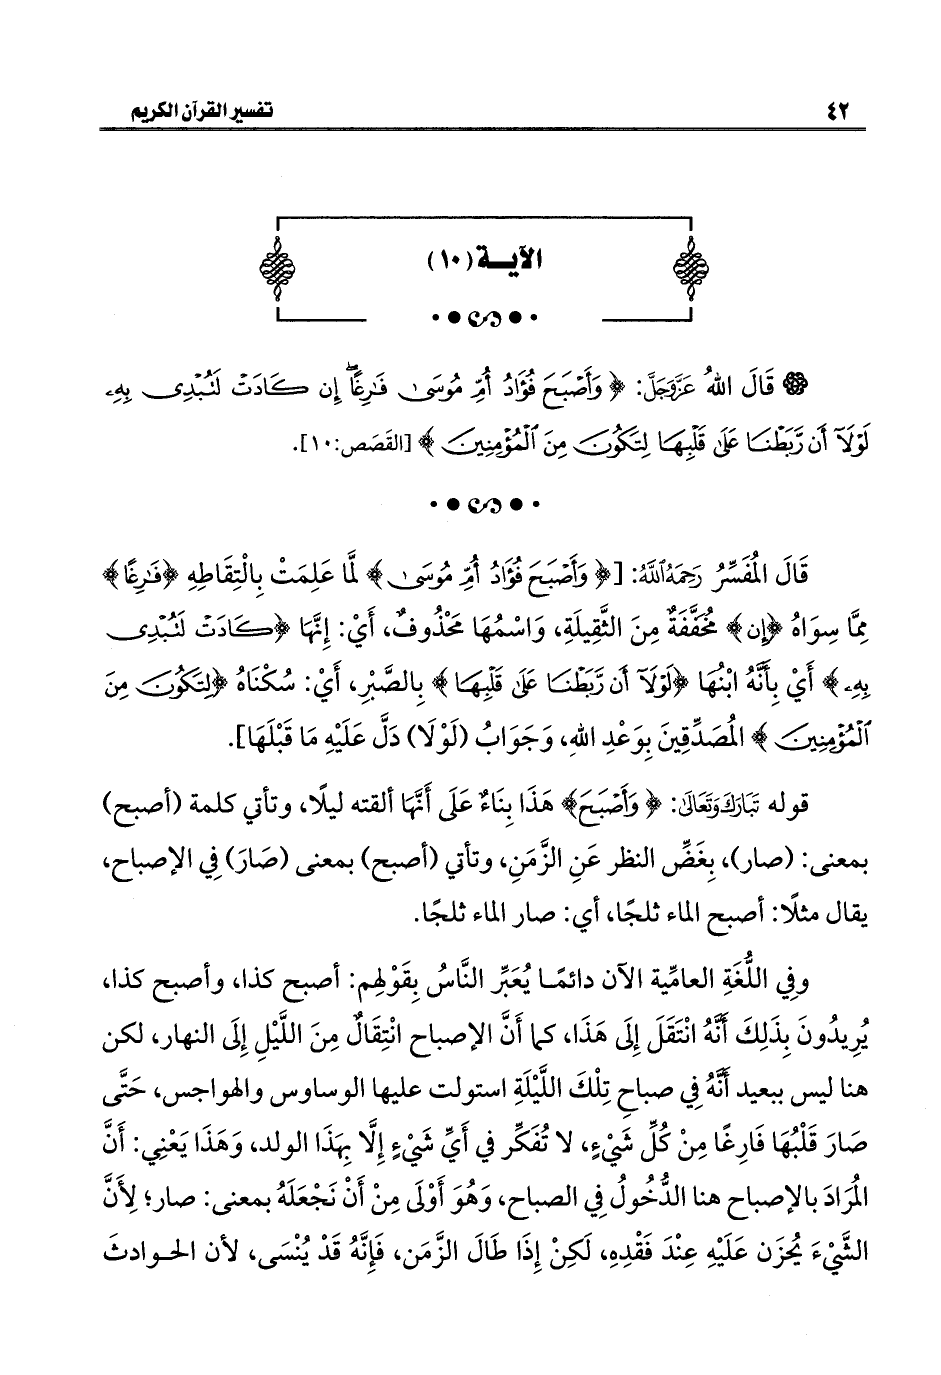 ٤٢ تفسير القرآن الكريم
الآيــة (١٠)
قَالَ اللهُ عَزَّوَجَلَّ: ﴿ وَأَصْبَحَ فُؤَادُ أُمِّ مُوسَىٰ فَٰرِغًاۖ إِن كَادَتْ لَتُبْدِى بِهِۦ
لَوْلَآ أَن رَّبَطْنَا عَلَىٰ قَلْبِهَا لِتَكُونَ مِنَ ٱلْمُؤْمِنِينَ ﴾ [القَصَص:١٠].
قَالَ المُفَسِّرُ رَحِمَهُ اللَّهُ: [﴿ وَأَصْبَحَ فُؤَادُ أُمِّ مُوسَىٰ ﴾ لمَّا عَلِمَتْ بِالْتِقَاطِهِ ﴿فَٰرِغًا﴾
مِمَّا سِوَاهُ ﴿إِن﴾ مُخَفَّفَةٌ مِنَ الثَّقِيلَةِ، وَاسْمُهَا مَحْذُوفٌ، أَيْ: إِنَّهَا ﴿كَادَتْ لَتُبْدِى
بِهِۦ﴾ أَيْ بِأَنَّهُ ابْنُهَا ﴿لَوْلَآ أَن رَّبَطْنَا عَلَىٰ قَلْبِهَا﴾ بِالصَّبْرِ، أَيْ: سُكْنَاهُ ﴿لِتَكُونَ مِنَ
ٱلْمُؤْمِنِينَ ﴾ المُصَدِّقِينَ بِوَعْدِ اللهِ، وَجَوَابُ (لَوْلَا) دَلَّ عَلَيْهِ مَا قَبْلَهَا].
قوله تَبَارَكَ وَتَعَالَى: ﴿ وَأَصْبَحَ﴾ هَذَا بِنَاءً عَلَى أَنَّهَا ألقته ليلًا، وتأتي كلمة (أصبح)
بمعنى: (صار)، بِغَضِّ النظر عَنِ الزَّمَنِ، وتأتي (أصبح) بمعنى (صَارَ) فِي الإصباح،
يقال مثلًا: أصبح الماء ثلجًا، أي: صار الماء ثلجًا.
وفِي اللُّغَةِ العامِّية الآن دائمًا يُعَبِّر النَّاسُ بِقَوْلِهم: أصبح كذا، وأصبح كذا،
يُرِيدُونَ بِذَلِكَ أَنَّهُ انْتَقَلَ إِلَى هَذَا، كما أَنَّ الإصباح انْتِقَالٌ مِنَ اللَّيْلِ إِلَى النهار، لكن
هنا ليس ببعيد أَنَّهُ فِي صباحِ تِلْكَ اللَّيْلَةِ استولت عليها الوساوس والهواجس، حَتَّى
صَارَ قَلْبُهَا فَارِغًا مِنْ كُلِّ شَيْءٍ، لا تُفَكِّر في أَيِّ شَيْءٍ إِلَّا بِهَذَا الولد، وَهَذَا يَعْنِي: أَنَّ
المُرَادَ بالإصباح هنا الدُّخُولُ فِي الصباح، وَهُوَ أَوْلَى مِنْ أَنْ نَجْعَلَهُ بمعنى: صار؛ لِأَنَّ
الشَّيْءَ يُحزَن عَلَيْهِ عِنْدَ فَقْدِهِ، لَكِنْ إِذَا طَالَ الزَّمَن، فَإِنَّهُ قَدْ يُنْسَى، لأن الحوادثَ